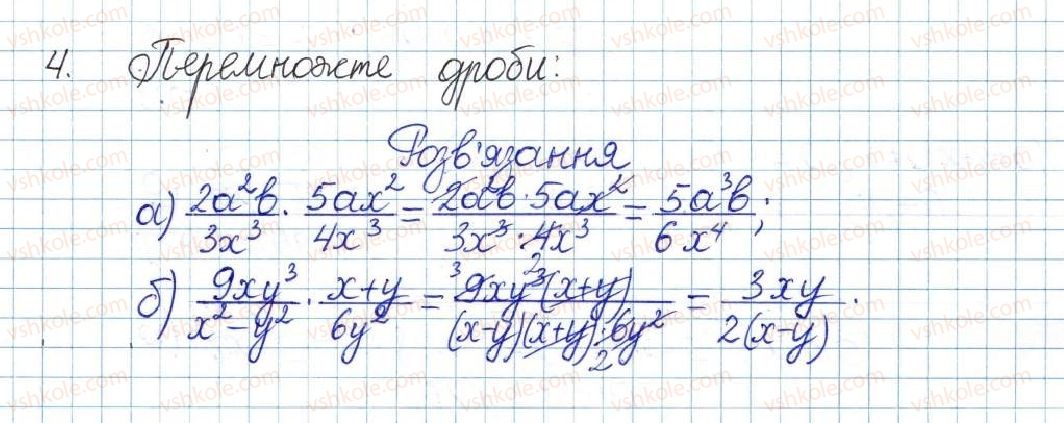 4. Перемножте дроби:
Розв'язання
а) 2a²b/3x³ · 5ax²/4x³ = 2a²b·5ax²/3x³·4x³ = 5a³b/6x⁴;
б) 9xy³/x²-y² · x+y/6y² = 9xy³(x+y)/(x-y)(x+y)·6y² = 3xy/2(x-y).